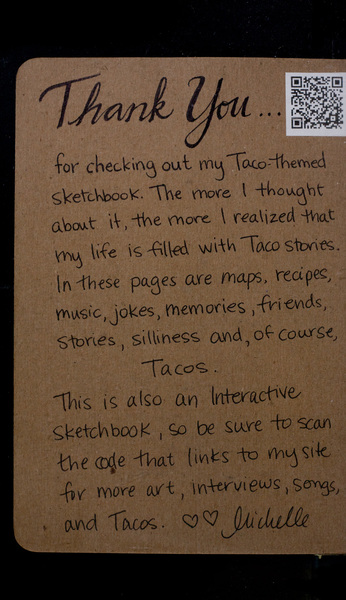 Thank You...
for checking out my Taco-themed
sketchbook. The more I thought
about it, the more I realized that
my life is filled with Taco stories.
In these pages are maps, recipes,
music, jokes, memories, friends,
stories, silliness and, of course,
Tacos.
This is also an Interactive
sketchbook, so be sure to scan
the code that links to my site
for more art, interviews, songs,
and Tacos. ♡♡ Michelle